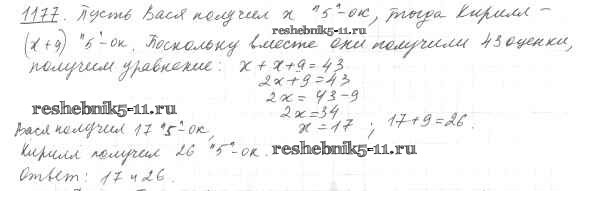 1177. Пусть Вася получил x "5"-ок, тогда Кирилл –
reshebnik5-11.ru
(x+9) "5"-ок. Поскольку вместе они получили 43 оценки,
получим уравнение: x + x + 9 = 43
2x + 9 = 43
2x = 43 - 9
2x = 34
x = 17 ; 17+9=26.
reshebnik5-11.ru
Вася получил 17 "5"-ок,
Кирилл получил 26 "5"-ок.
reshebnik5-11.ru
Ответ: 17 и 26.